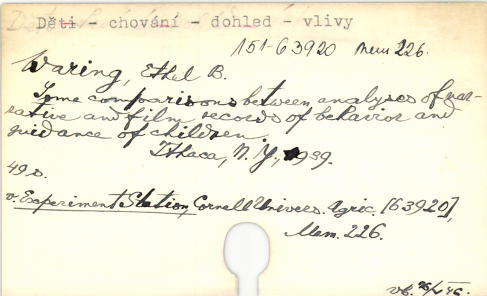 Děti - chování - dohled - vlivy
151-63920 Mem 226.
Waring, Ethel B.
Some comparisons between analyses of nar-
rative and film records of behavior and
guidance of children.
Ithaca, N. Y., 1939.
49 s.
v. Experiment Station, Cornell Univers. Agric. [63920],
Mem. 226.